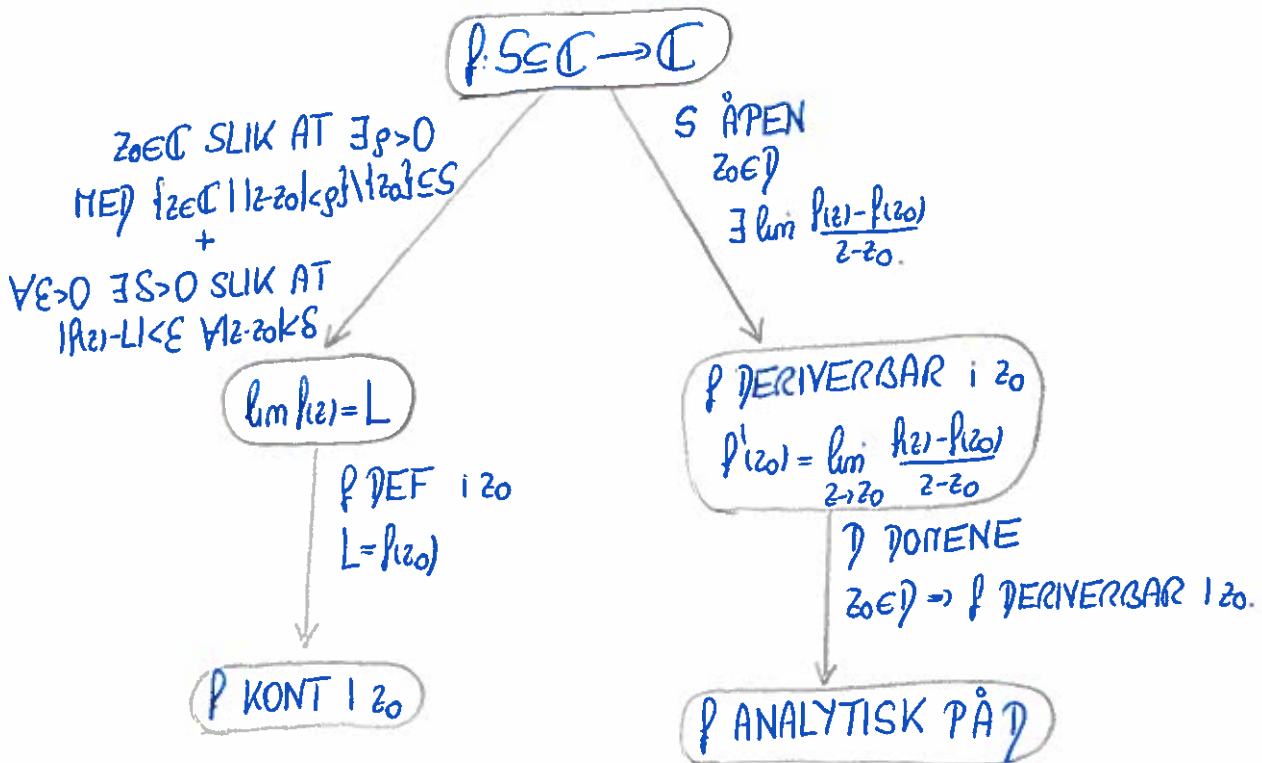 f: S ⊆ ℂ → ℂ
z₀∈ℂ SLIK AT ∃ρ>0
MED {z∈ℂ | |z-z₀|<ρ}\{z₀}⊆S
+
∀ε>0 ∃δ>0 SLIK AT
|f(z)-L|<ε ∀|z-z₀|<δ
lim f(z) = L
f DEF i z₀
L = f(z₀)
f KONT I z₀
S ÅPEN
z₀∈D
∃ lim f(z)-f(z₀)
z-z₀.
f DERIVERBAR i z₀
f'(z₀) = lim f(z)-f(z₀)
z→z₀ z-z₀
D DOMENE
z₀∈D ⇒ f DERIVERBAR I z₀.
f ANALYTISK PÅ D